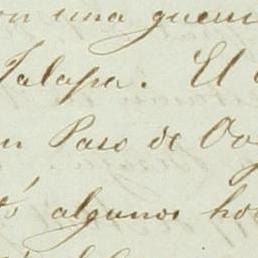 on una guerri
Jalapa. El
n Paso de Ov
algunos ho